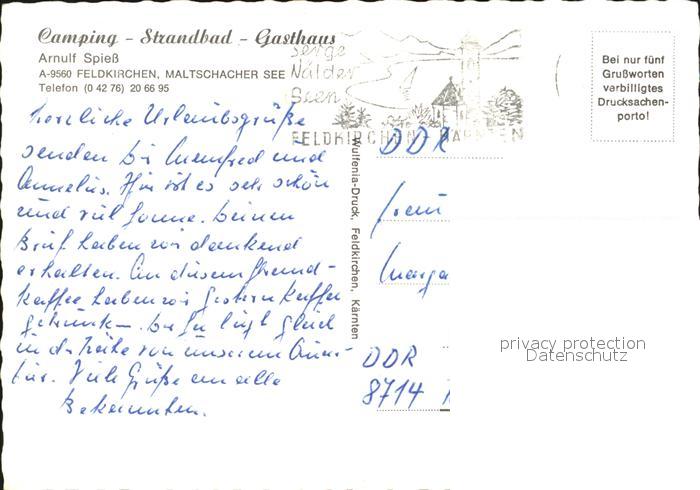 Camping - Strandbad - Gasthaus
Arnulf Spieß
A-9560 FELDKIRCHEN, MALTSCHACHER SEE
Telefon (0 42 76) 20 66 95
herzliche Urlaubsgrüße
senden Manfred und
Annelies. Hier ist es sehr schön
und viel Sonne. Deinen
Brief haben wir dankend
erhalten. An diesem Strand-
kaffee haben wir gestern Kaffee
getrunken. liegt gleich
in der Nähe von unserem Quar-
tier. Viele Grüße an alle
Bekannten.
Berge
Wälder
Seen
FELDKIRCHEN KÄRNTEN
Wulfenia-Druck, Feldkirchen, Kärnten
Bei nur fünf
Grußworten
verbilligtes
Drucksachen-
porto!
DDR
Frau
Marga
DDR
8714
privacy protection
Datenschutz